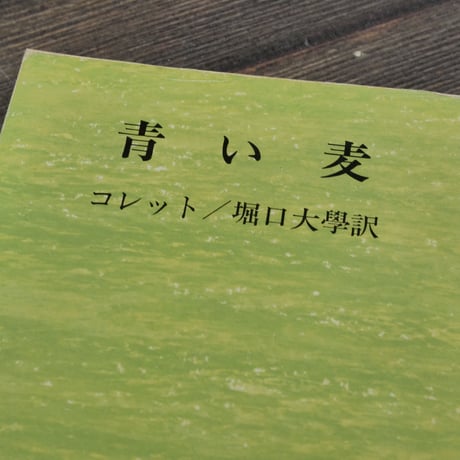 青い麦
コレット／堀口大學訳